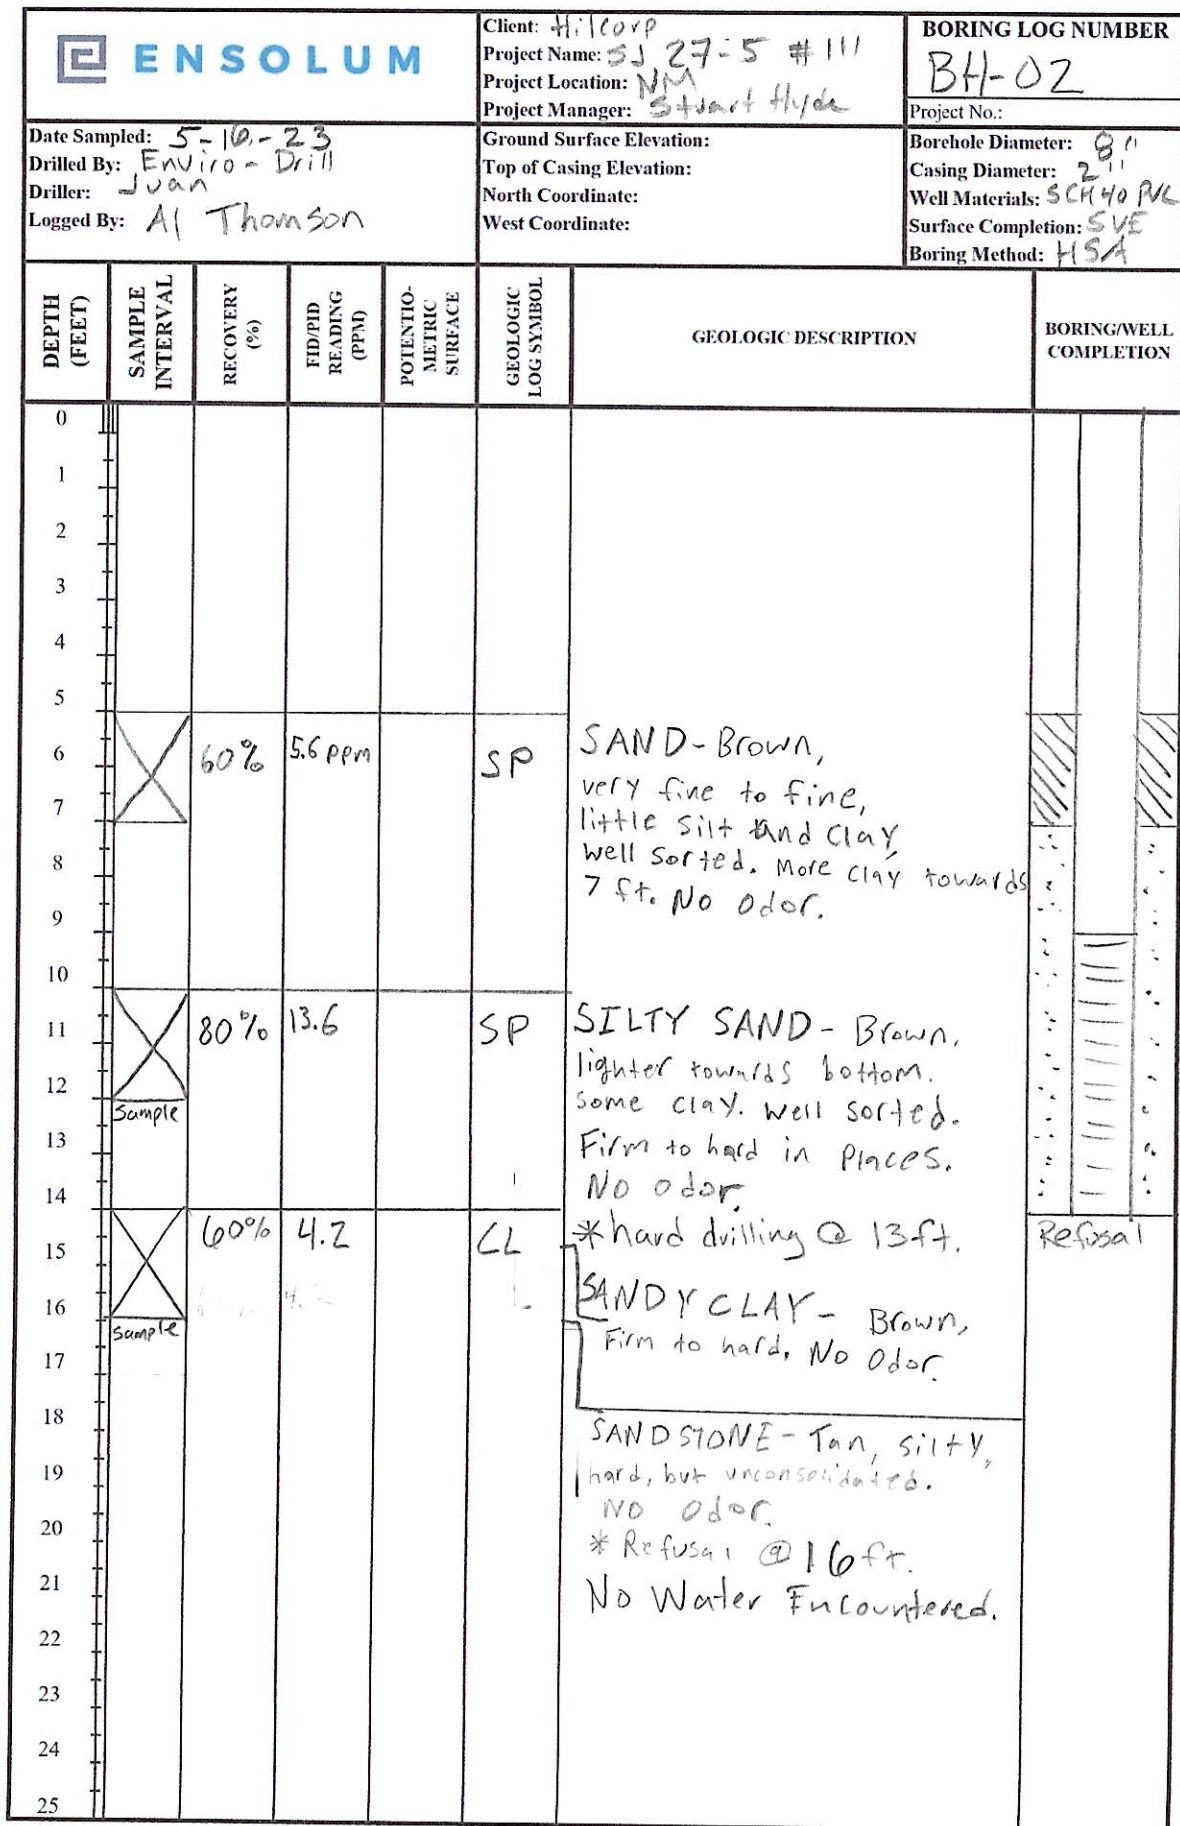 ENSOLUM
Client: Hilcorp
Project Name: SJ 27-5 #111
Project Location: NM
Project Manager: Stuart Hyde
BORING LOG NUMBER
BH-02
Project No.:
Date Sampled: 5-16-23
Drilled By: Enviro-Drill
Driller: Juan
Logged By: Al Thomson
Ground Surface Elevation:
Top of Casing Elevation:
North Coordinate:
West Coordinate:
Borehole Diameter: 8"
Casing Diameter: 2"
Well Materials: SCH 40 PVC
Surface Completion: SVE
Boring Method: HSA
DEPTH (FEET)
SAMPLE INTERVAL
RECOVERY (%)
FID/PID READING (PPM)
POTENTIO-METRIC SURFACE
GEOLOGIC LOG SYMBOL
GEOLOGIC DESCRIPTION
BORING/WELL COMPLETION
0
1
2
3
4
5
6
7
8
9
10
11
12
13
14
15
16
17
18
19
20
21
22
23
24
25
60% 5.6 ppm SP
SAND - Brown,
very fine to fine,
little silt and clay,
well sorted. More clay towards
7 ft. No Odor.
80% 13.6 SP
Sample
SILTY SAND - Brown,
lighter towards bottom.
some clay. well sorted.
Firm to hard in places.
No odor.
*hard drilling @ 13 ft.
60% 4.2 CL
Sample
Refusal
SANDY CLAY - Brown,
Firm to hard, No Odor.
SANDSTONE - Tan, silty,
hard, but unconsolidated.
NO Odor.
* Refusal @ 16 ft.
No Water Encountered.